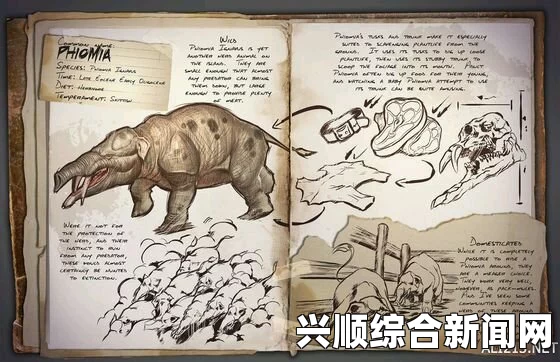 Common Name:
PHIOMIA
Species: Phiomia Ignavus
Time: Late Eocene Early Oligocene
Diet: Herbivore
Temperament: Skittish
Wild
Phiomia Ignavus is yet
another herd animal on
the island. They are
small enough that almost
any predator can take
them down, but large
enough to provide plenty
of meat.
Were it not for
the protection of
the herd, and their
instinct to run
from any predator,
these would almost
certainly be hunted
to extinction.
Phiomia's tusks and trunk make it especially
suited to scavenging plantlife from the
ground. It uses its tusks to dig up loose
plantlife, then uses its stubby trunk to
scoop the foliage into its mouth. Adult
Phiomia often dig up food for their young,
and watching a baby Phiomia attempt to use
its trunk can be quite amusing.
Domesticated
While it is completely
possible to ride a
Phiomia around, they
are a meager choice.
They work very well,
however, as pack-mules.
And I've seen some
communities keeping a
herd of these around
兴顺综合新闻网